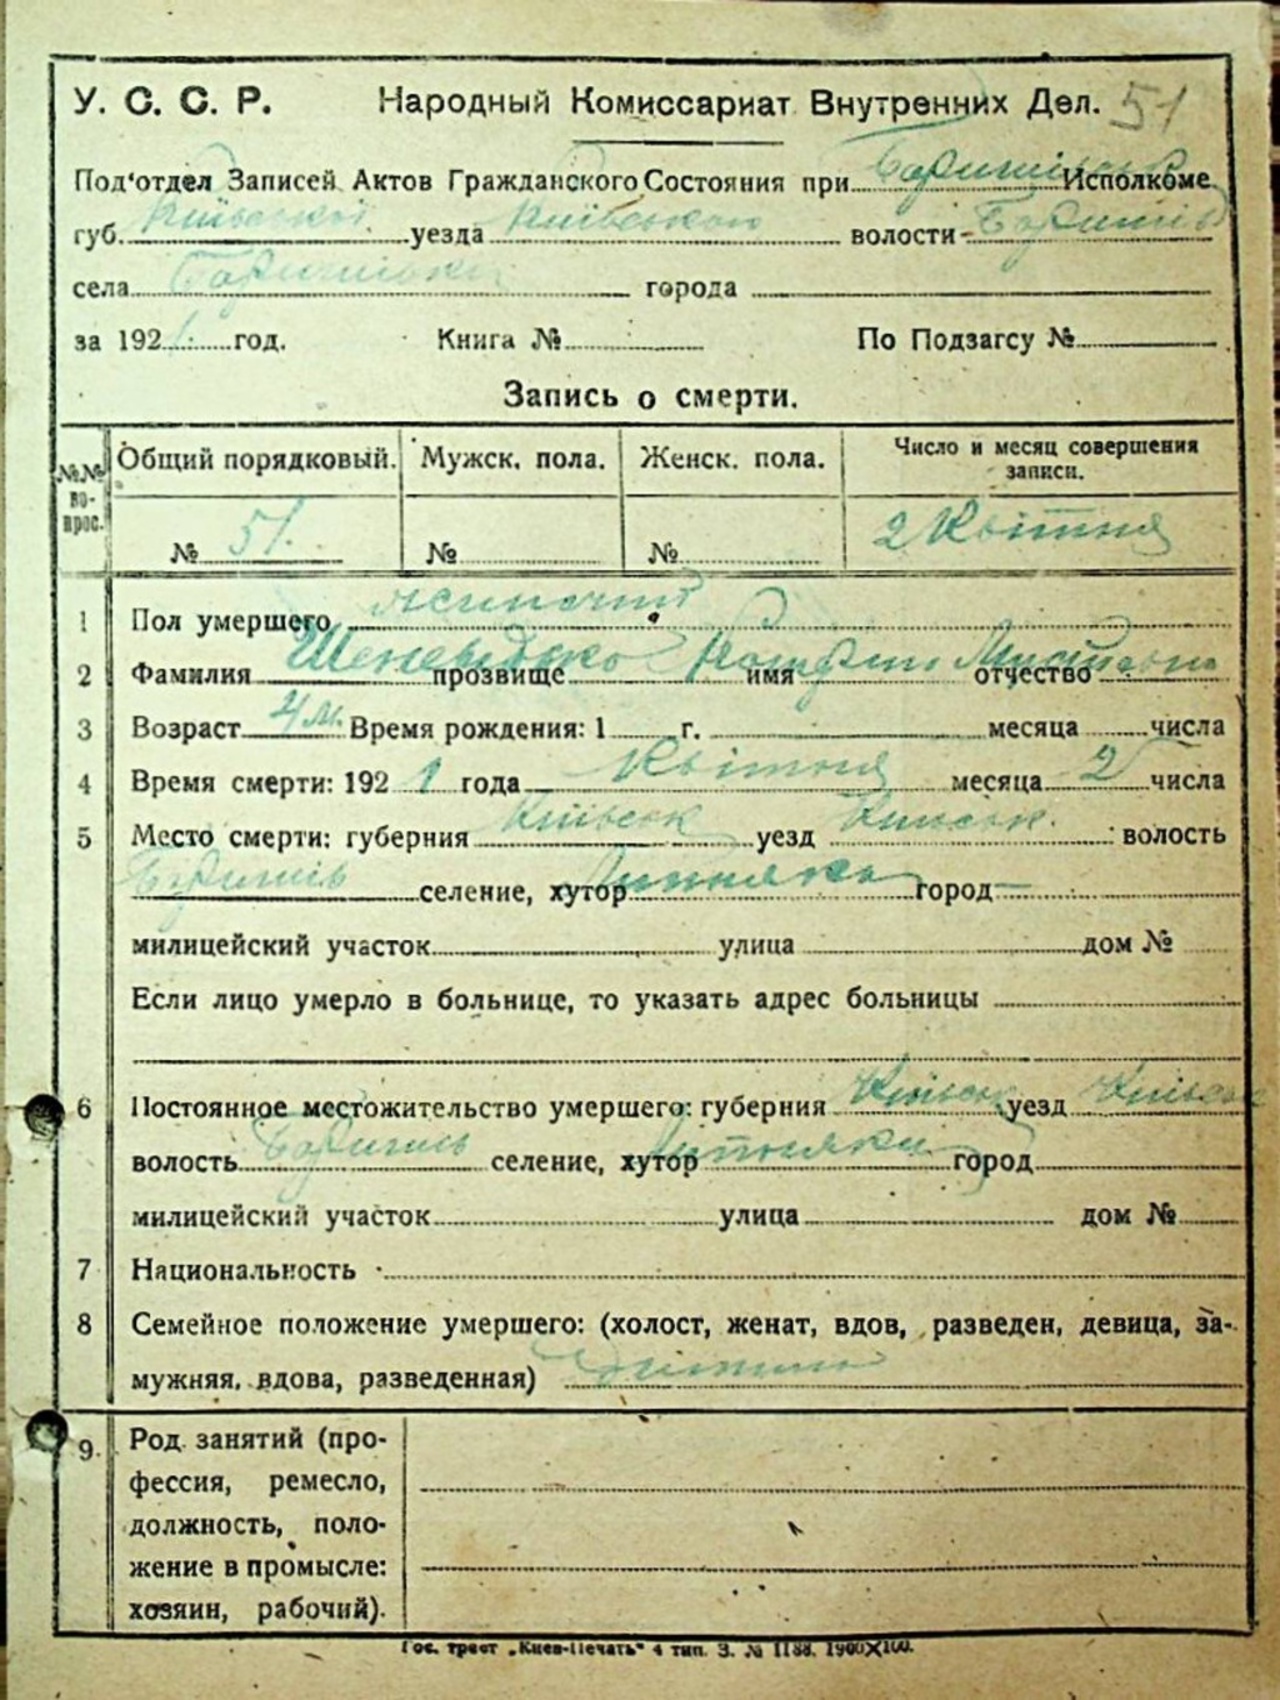 У. С. С. Р. Народный Комиссариат Внутренних Дел. 51
Под'отдел Записей Актов Гражданского Состояния при Исполкоме
губ. Київської уезда Київського волости Баришів
села Баришівки города
за 1921 год. Книга № По Подзагсу №
Запись о смерти.
№№ во-прос. Общий порядковый. Мужск. пола. Женск. пола. Число и месяц совершения записи.
№ 51. № № 2 Квітня
1 Пол умершего жіночий
2 Фамилия прозвище имя отчество
3 Возраст 4 м. Время рождения: 1 г. месяца числа
4 Время смерти: 1921 года Квітня месяца 2 числа
5 Место смерти: губерния Київськ уезд Київськ. волость
Баришів селение, хутор город
милицейский участок улица дом №
Если лицо умерло в больнице, то указать адрес больницы
6 Постоянное местожительство умершего: губерния Київськ уезд Київськ
волость Баришів селение, хутор город
милицейский участок улица дом №
7 Национальность
8 Семейное положение умершего: (холост, женат, вдов, разведен, девица, за-
мужняя, вдова, разведенная) дитина
9. Род занятий (про-
фессия, ремесло,
должность, поло-
жение в промысле:
хозяин, рабочий).
Гос. трест „Киев-Печать" 4 тип. З. № 1188. 1900X100.